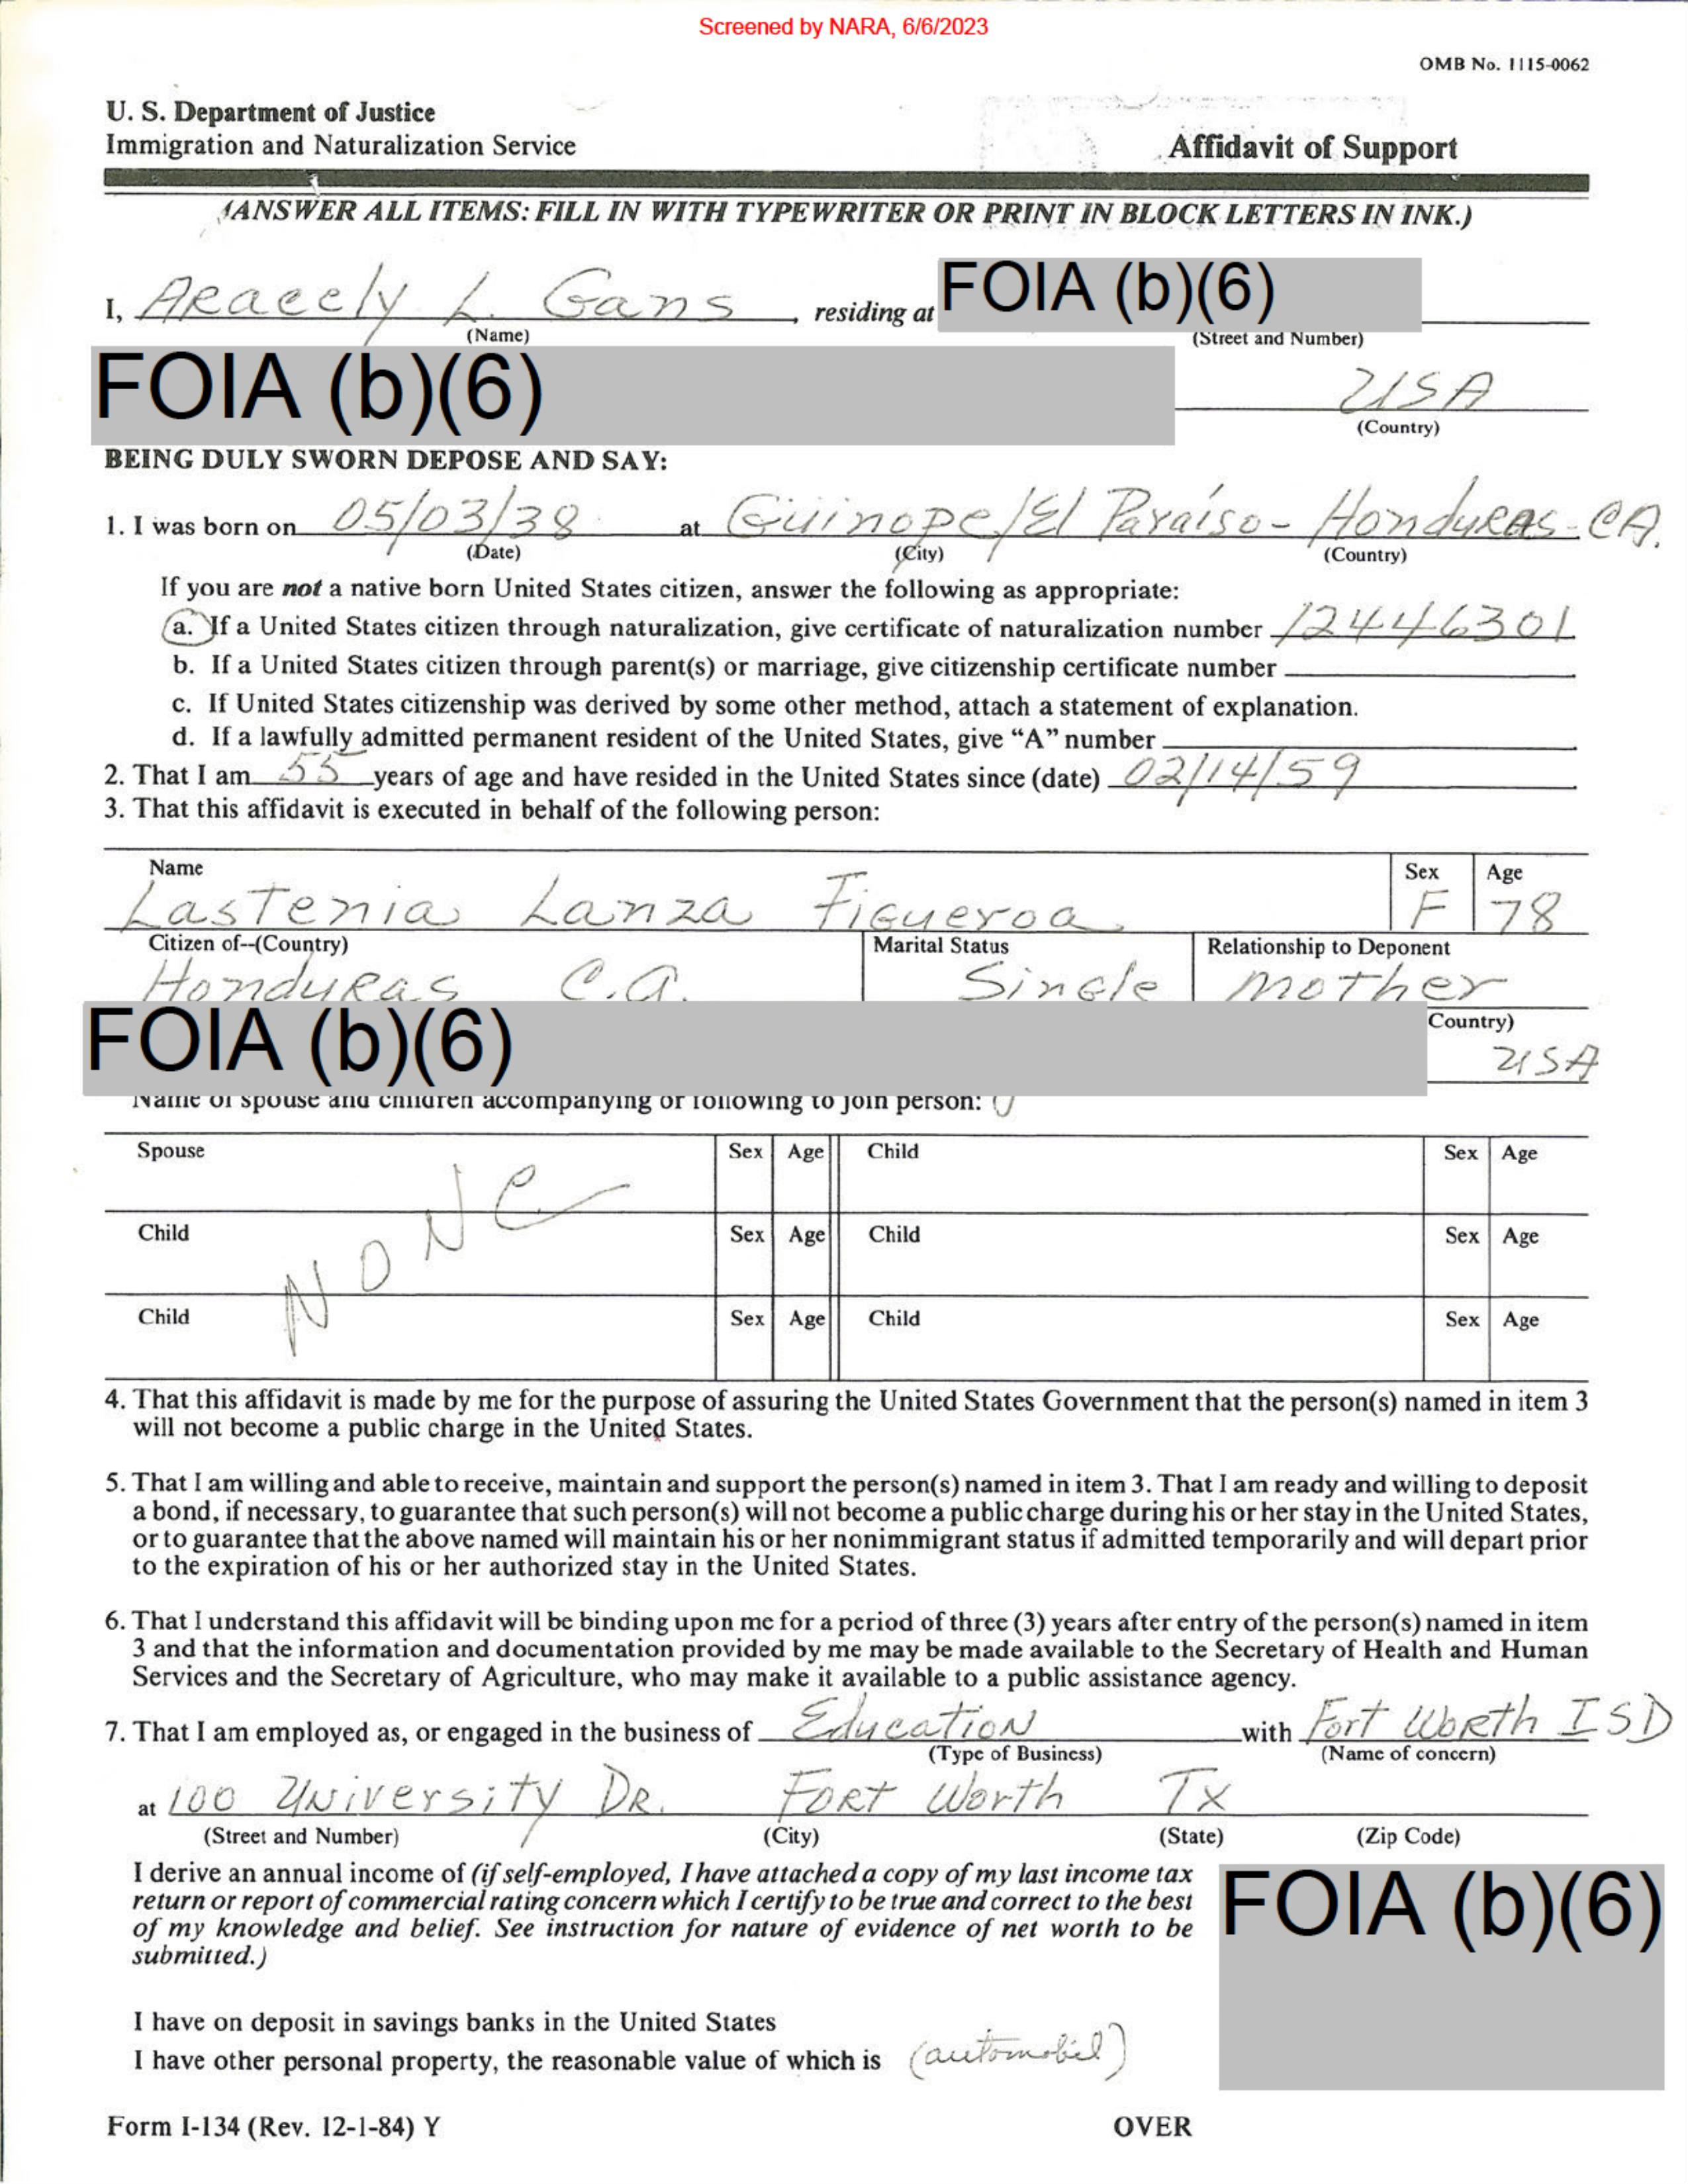 Screened by NARA, 6/6/2023
OMB No. 1115-0062
U. S. Department of Justice
Immigration and Naturalization Service
Affidavit of Support
(ANSWER ALL ITEMS: FILL IN WITH TYPEWRITER OR PRINT IN BLOCK LETTERS IN INK.)
I, Aracely L. Gans, residing at FOIA (b)(6)
(Name) (Street and Number)
FOIA (b)(6) USA
(Country)
BEING DULY SWORN DEPOSE AND SAY:
1. I was born on 05/03/38 at Güinope/El Paraíso- Honduras-CA.
(Date) (City) (Country)
If you are not a native born United States citizen, answer the following as appropriate:
a. If a United States citizen through naturalization, give certificate of naturalization number 12446301
b. If a United States citizen through parent(s) or marriage, give citizenship certificate number
c. If United States citizenship was derived by some other method, attach a statement of explanation.
d. If a lawfully admitted permanent resident of the United States, give “A” number
2. That I am 55 years of age and have resided in the United States since (date) 02/14/59
3. That this affidavit is executed in behalf of the following person:
Name Sex Age
Lastenia Lanza Figueroa F 78
Citizen of--(Country) Marital Status Relationship to Deponent
Honduras C.A. Single mother
FOIA (b)(6) Country)
USA
Name of spouse and children accompanying or following to join person:
Spouse Sex Age Child Sex Age
Child Sex Age Child Sex Age
Child Sex Age Child Sex Age
NONE
4. That this affidavit is made by me for the purpose of assuring the United States Government that the person(s) named in item 3
will not become a public charge in the United States.
5. That I am willing and able to receive, maintain and support the person(s) named in item 3. That I am ready and willing to deposit
a bond, if necessary, to guarantee that such person(s) will not become a public charge during his or her stay in the United States,
or to guarantee that the above named will maintain his or her nonimmigrant status if admitted temporarily and will depart prior
to the expiration of his or her authorized stay in the United States.
6. That I understand this affidavit will be binding upon me for a period of three (3) years after entry of the person(s) named in item
3 and that the information and documentation provided by me may be made available to the Secretary of Health and Human
Services and the Secretary of Agriculture, who may make it available to a public assistance agency.
7. That I am employed as, or engaged in the business of Education with Fort Worth ISD
(Type of Business) (Name of concern)
at 100 University DR. Fort Worth Tx
(Street and Number) (City) (State) (Zip Code)
I derive an annual income of (if self-employed, I have attached a copy of my last income tax
return or report of commercial rating concern which I certify to be true and correct to the best
of my knowledge and belief. See instruction for nature of evidence of net worth to be
submitted.)
FOIA (b)(6)
I have on deposit in savings banks in the United States
I have other personal property, the reasonable value of which is (automobil)
Form I-134 (Rev. 12-1-84) Y OVER